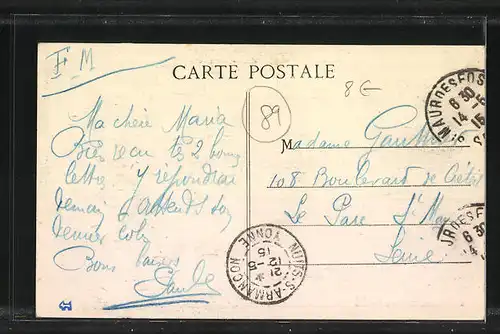 F M
CARTE POSTALE
8 €
89
Ma chère Maria
Bien reçu tes 2 bonnes
lettres y répondrai
demain j'attends ton
dernier colis
Bons baisers
Madame Gauthier
108 Boulevard de Créteil
Le Parc St Maur
Seine
ST MAUR DES FOS
6 30
14
15
NUITS-S-ARMANÇON
YONNE
21
12-6
15
UR DES FOS
6 30
14